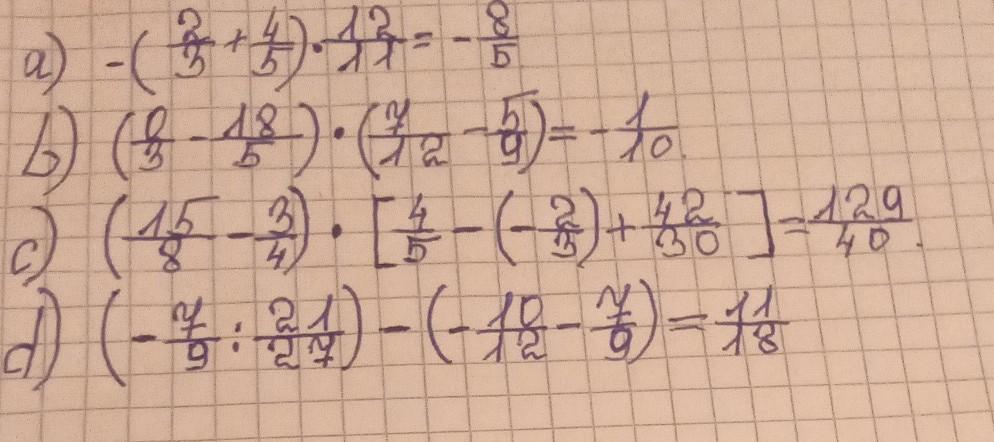 a) -(2/3 + 4/5) · 12/11 = -8/5
b) (0/3 - 18/5) · (7/12 - 5/9) = -1/10.
c) (15/8 - 3/4) · [4/5 - (-2/3) + 42/30] = 129/40.
d) (-7/9 : 21/27) - (-10/12 - 7/9) = 11/18